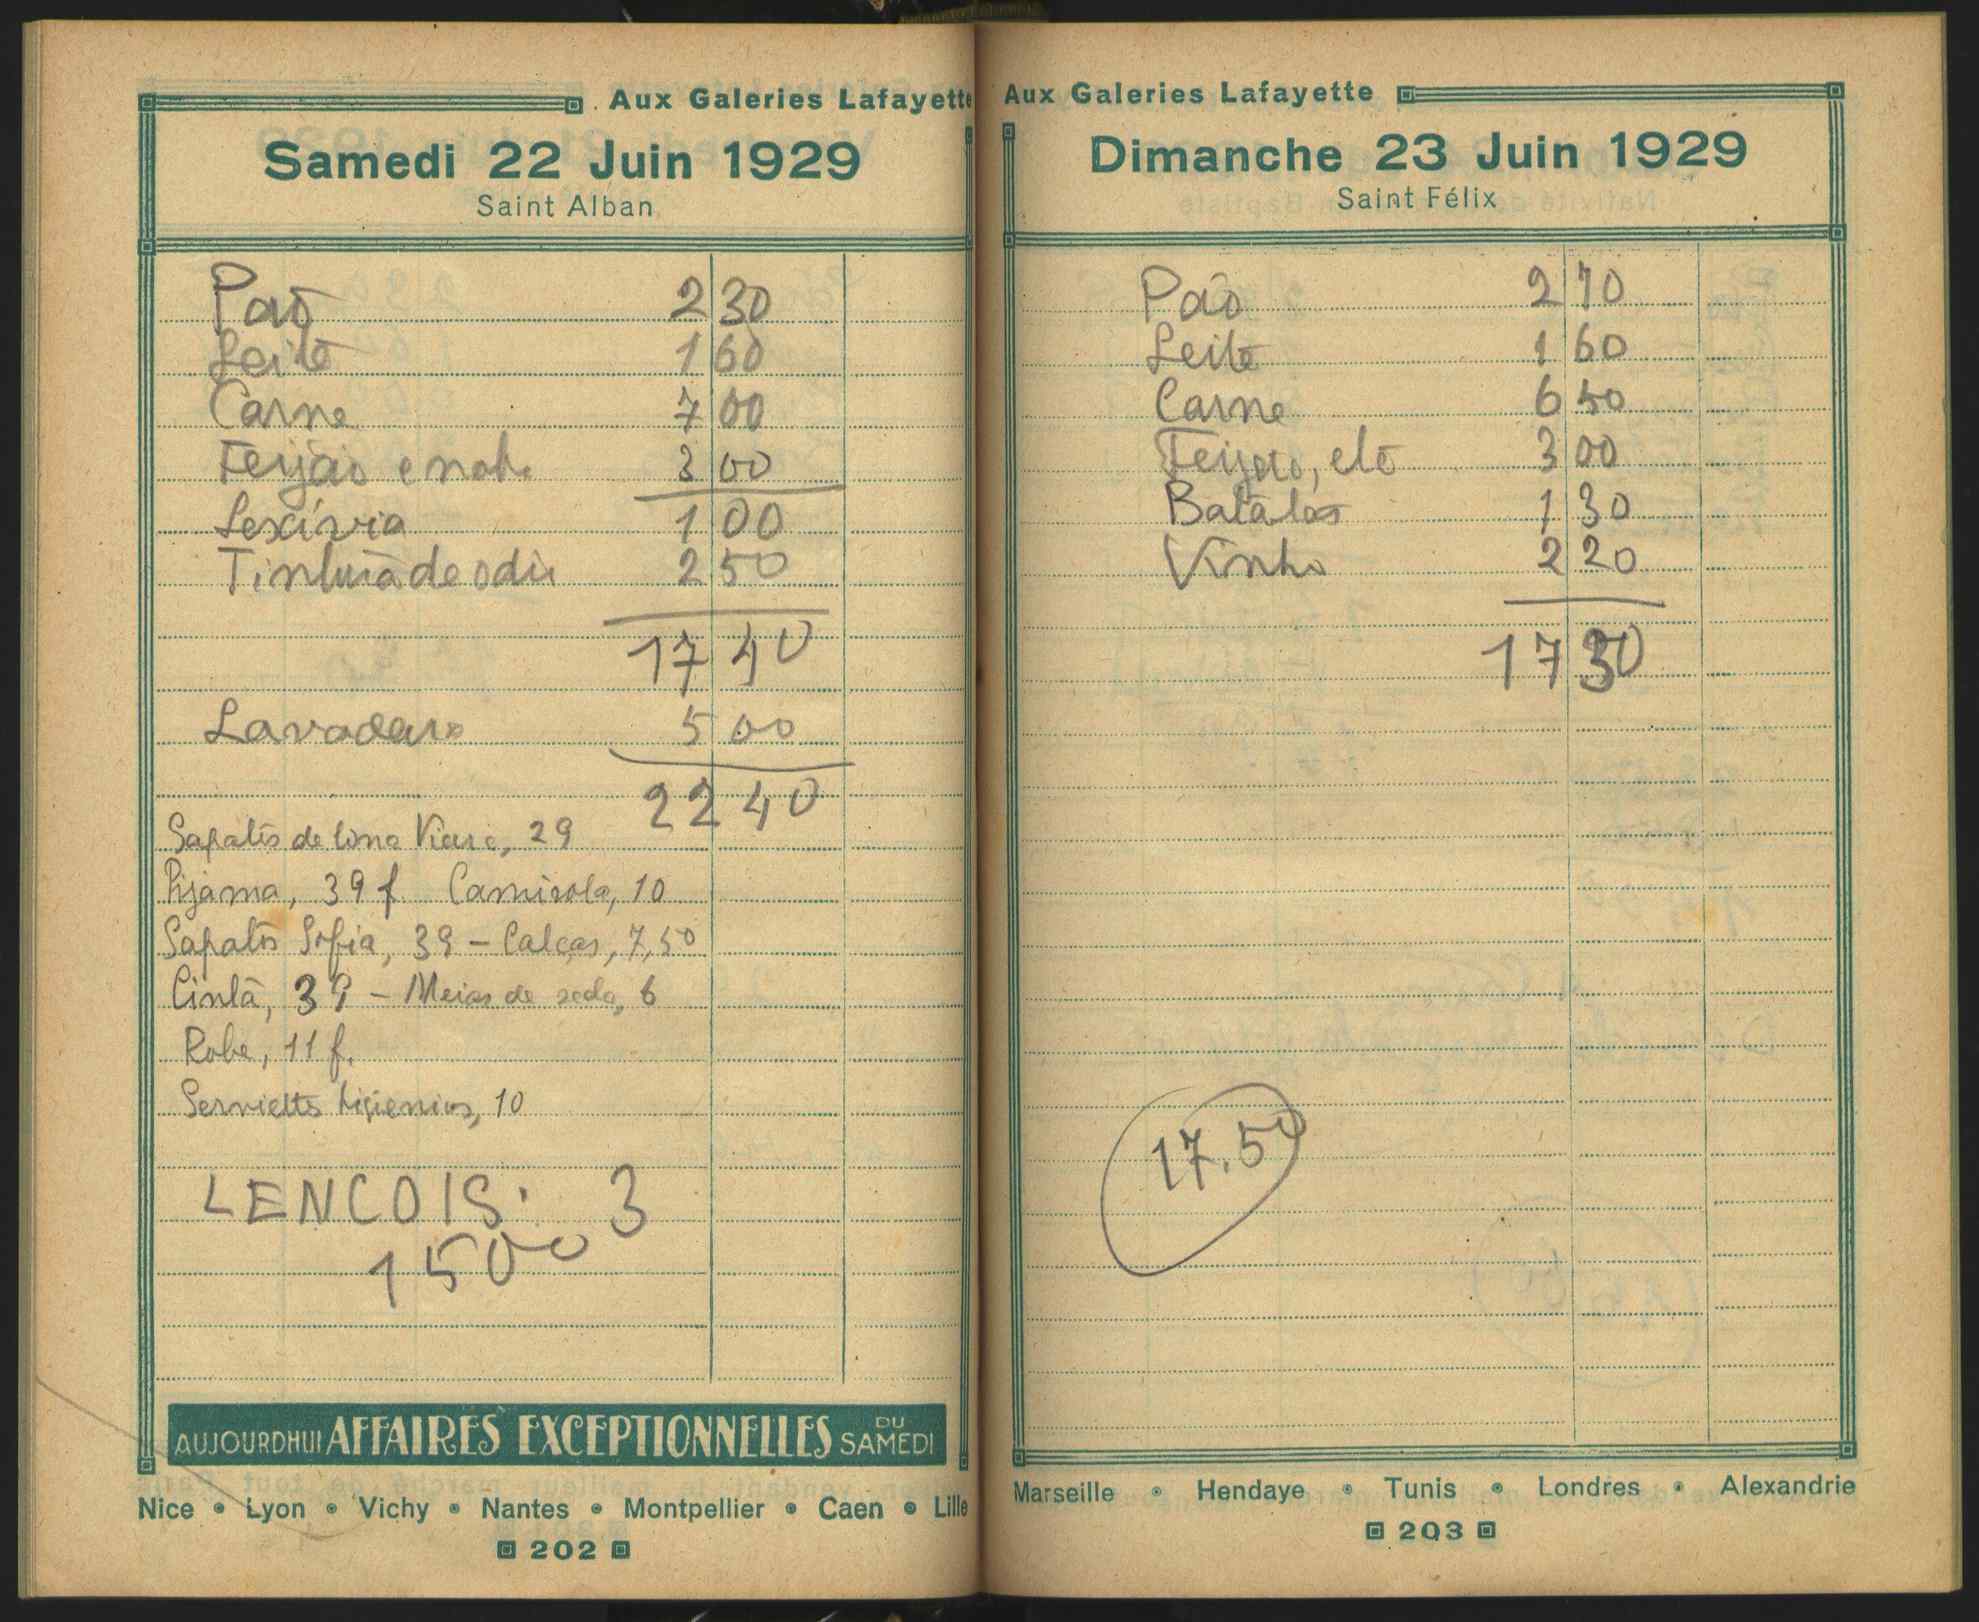 Aux Galeries Lafayette
Samedi 22 Juin 1929
Saint Alban
Pão 2 30
Leite 1 60
Carne 7 00
Feijão e 3 00
Lexívia 1 00
Tintura de odio 2 50
17 40
Lavadeira 5 00
22 40
Sapatos de lona 29
Pijama, 39 f Camisola, 10
Sapatos Sofia, 39 – Calças, 7,50
Cinta, 39 – Meias de seda, 6
Robe, 11 f.
Serviettes higienicos, 10
LENCOIS: 3
1500
AUJOURDHUI AFFAIRES EXCEPTIONNELLES DU SAMEDI
Nice • Lyon • Vichy • Nantes • Montpellier • Caen • Lille
202
Aux Galeries Lafayette
Dimanche 23 Juin 1929
Saint Félix
Pão 2 70
Leite 1 60
Carne 6 50
Feijão, etc 3 00
Batatas 1 30
Vinho 2 20
17 30
17.50
Marseille • Hendaye • Tunis • Londres • Alexandrie
203